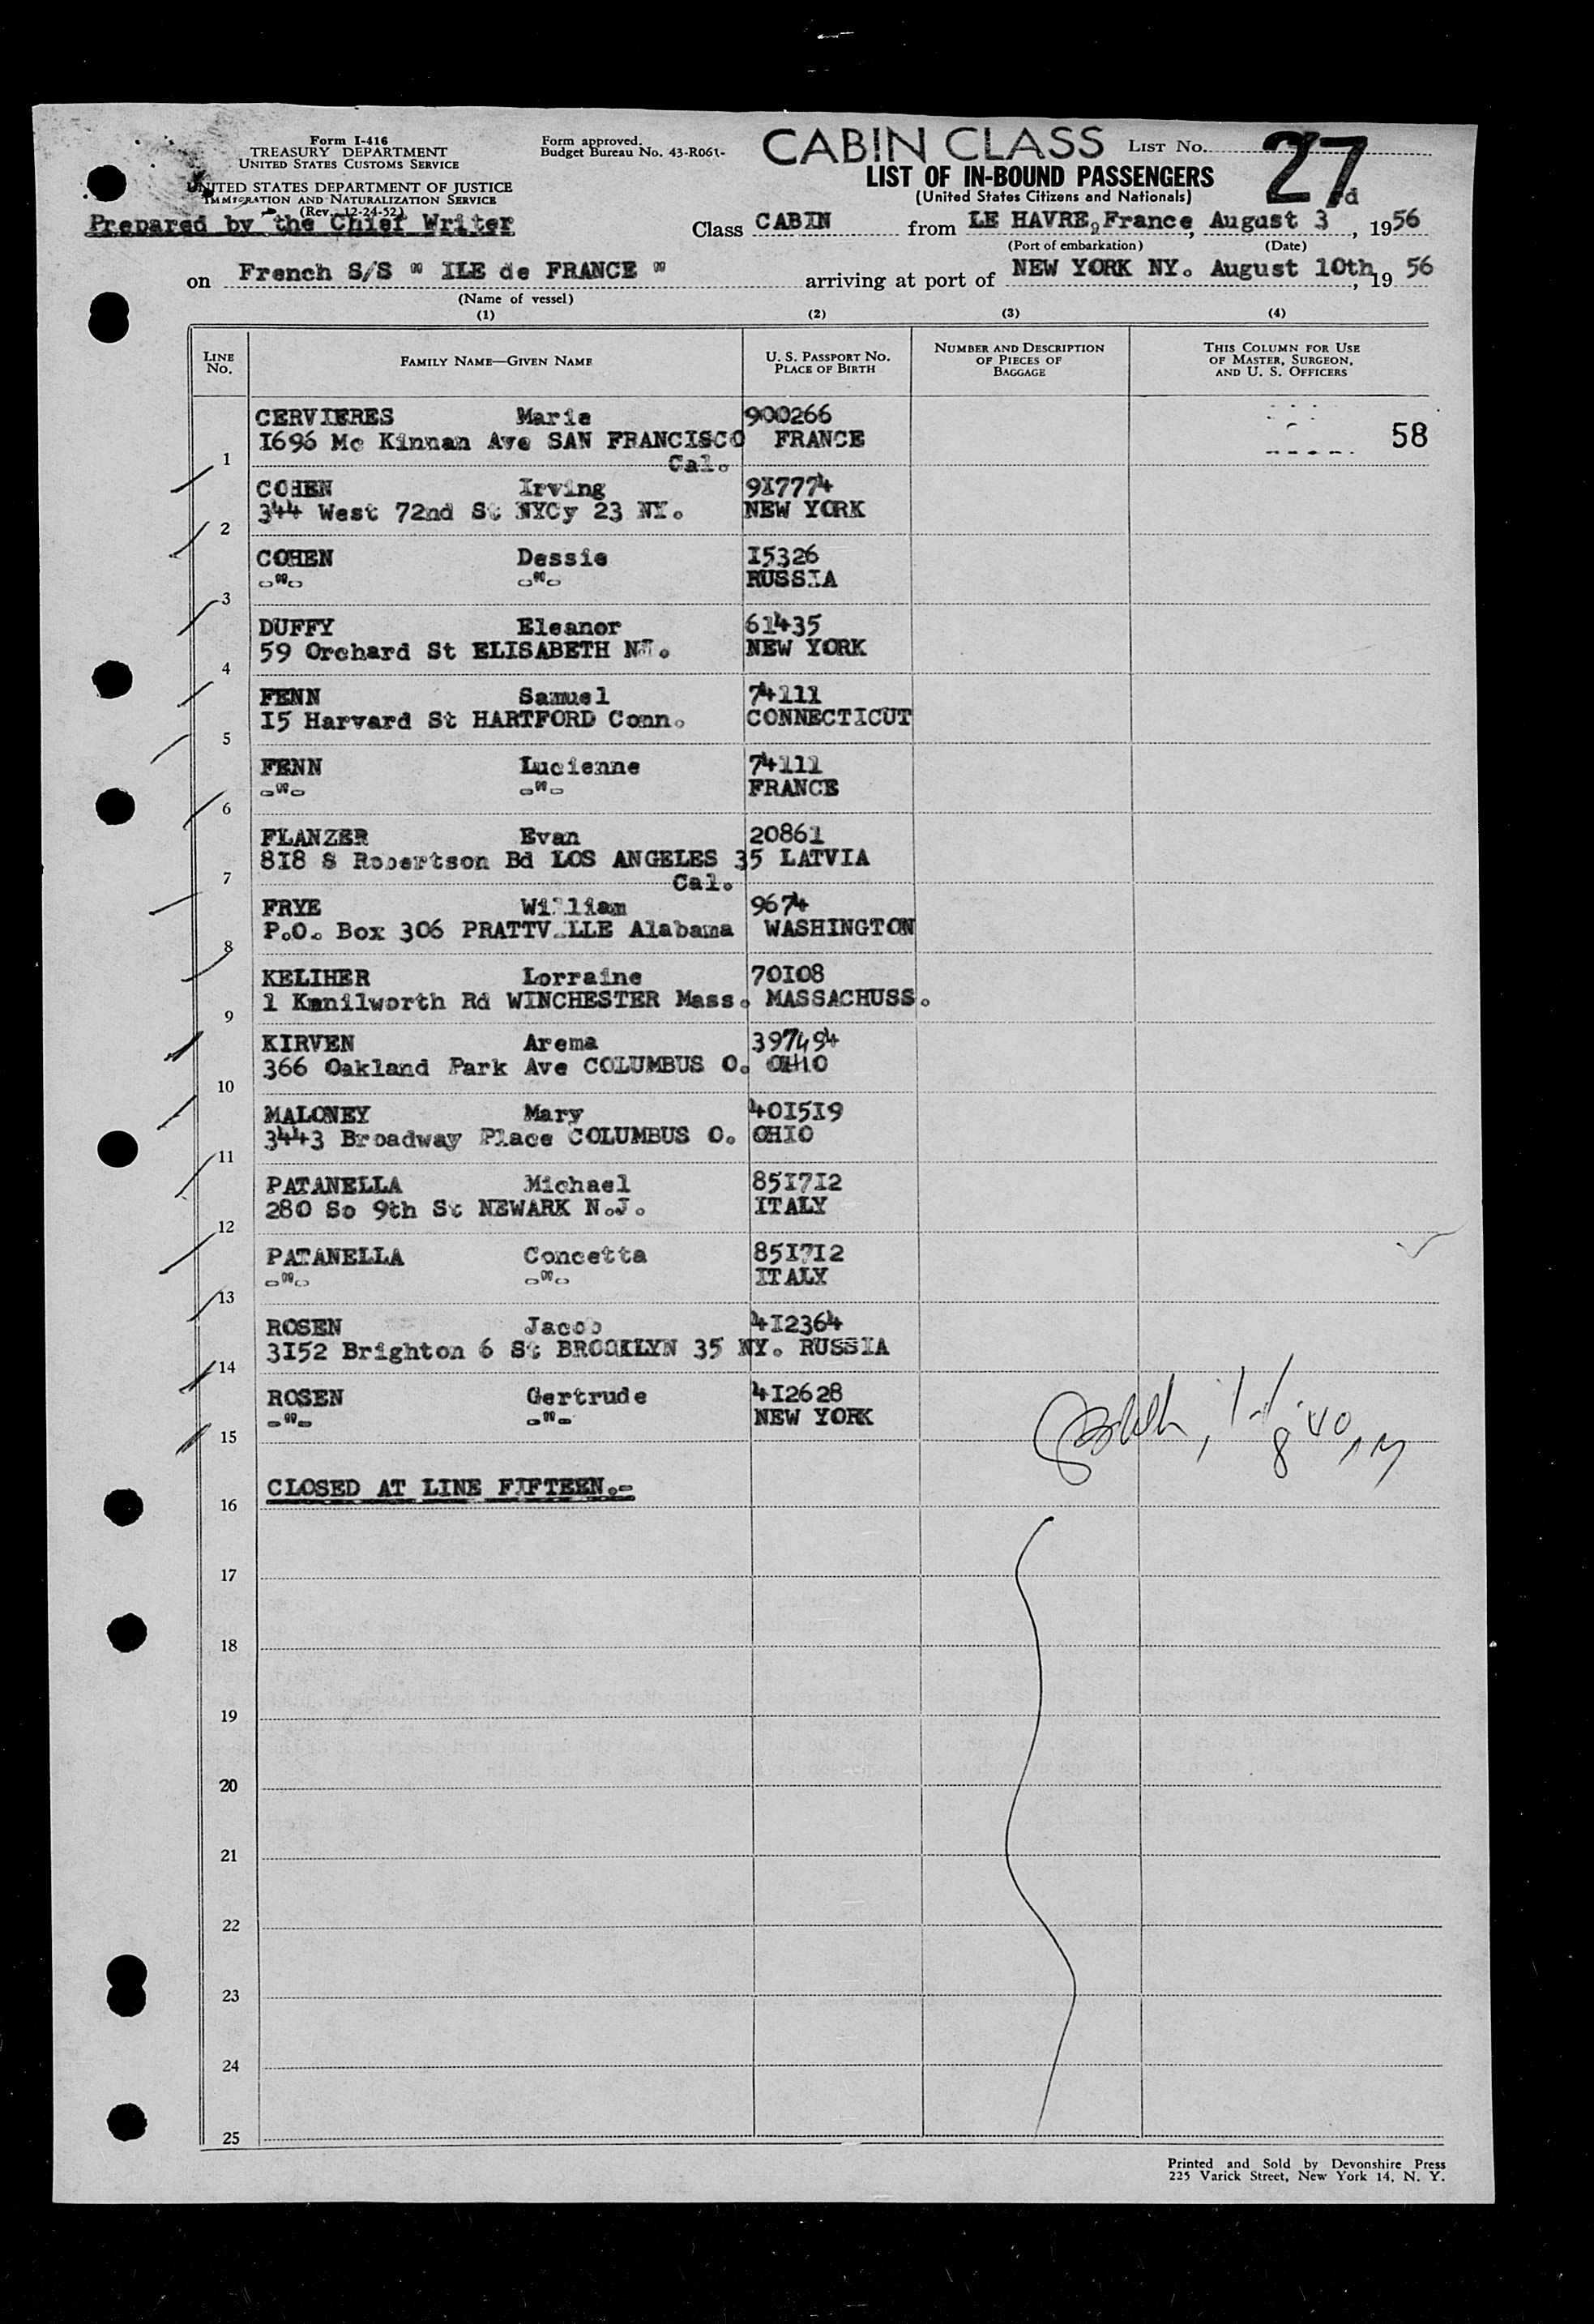 Form I-416
TREASURY DEPARTMENT
UNITED STATES CUSTOMS SERVICE
UNITED STATES DEPARTMENT OF JUSTICE
IMMIGRATION AND NATURALIZATION SERVICE
(Rev. 12-24-52)
Prepared by the Chief Writer
Form approved.
Budget Bureau No. 43-R061-
CABIN CLASS
LIST NO. 27
LIST OF IN-BOUND PASSENGERS
(United States Citizens and Nationals)
Class CABIN from LE HAVRE, France, August 3, 1956
(Port of embarkation) (Date)
on French S/S " ILE de FRANCE " arriving at port of NEW YORK NY. August 10th, 19 56
(Name of vessel)
(1) (2) (3) (4)
LINE NO.
FAMILY NAME—GIVEN NAME
U. S. PASSPORT NO.
PLACE OF BIRTH
NUMBER AND DESCRIPTION
OF PIECES OF
BAGGAGE
THIS COLUMN FOR USE
OF MASTER, SURGEON,
AND U. S. OFFICERS
CERVIERES Marie 900266
1696 Mc Kinnan Ave SAN FRANCISCO FRANCE 58
1 Cal.
COHEN Irving 9I7774
344 West 72nd St NYCy 23 NY. NEW YORK
2
COHEN Dessie I5326
-"- -"- RUSSIA
3
DUFFY Eleanor 61435
59 Orchard St ELISABETH NJ. NEW YORK
4
FENN Samuel 74111
I5 Harvard St HARTFORD Conn. CONNECTICUT
5
FENN Lucienne 74111
-"- -"- FRANCE
6
FLANZER Evan 20861
8I8 S Robertson Bd LOS ANGELES 35 LATVIA
7 Cal.
FRYE William 9674
P.O. Box 306 PRATTVILLE Alabama WASHINGTON
8
KELIHER Lorraine 70I08
1 Kenilworth Rd WINCHESTER Mass. MASSACHUSS.
9
KIRVEN Arema 397494
366 Oakland Park Ave COLUMBUS O. OHIO
10
MALONEY Mary 40I5I9
3443 Broadway Place COLUMBUS O. OHIO
11
PATANELLA Michael 85I7I2
280 So 9th St NEWARK N.J. ITALY
12
PATANELLA Concetta 85I7I2
-"- -"- ITALY
13
ROSEN Jacob 4I2364
3I52 Brighton 6 St BROOKLYN 35 NY. RUSSIA
14
ROSEN Gertrude 4I2628
-"- -"- NEW YORK
15
CLOSED AT LINE FIFTEEN.-
16
17
18
19
20
21
22
23
24
25
Printed and Sold by Devonshire Press
225 Varick Street, New York 14, N. Y.